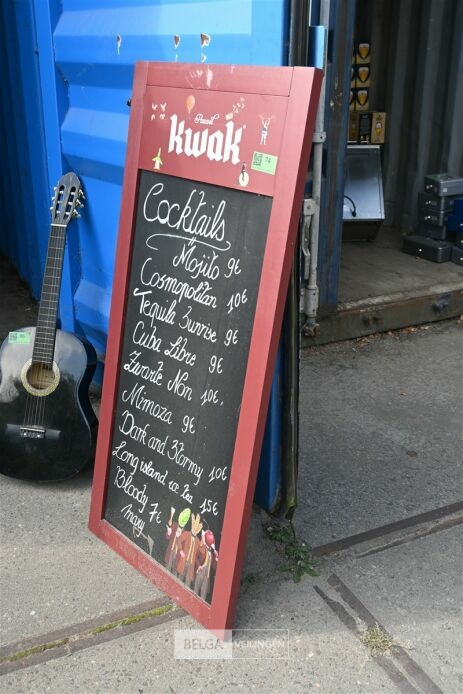 Pauwel
kwak
Cocktails
Mojito 9€
Cosmopolitan 10€
Tequila Sunrise 9€
Cuba Libre 9€
Zwarte Non 10€.
Mimoza 9€
Dark and Stormy 10€
Long island ice tea 15€
Bloody 7€
mary
BELGA VEILINGEN